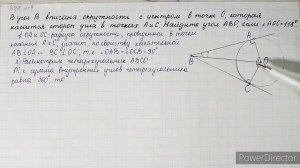 В угол В вписана окружность с центром в точке О, которая
касается сторон угла в точках А и С. Найдите угол АВС, если ∠АОС=115°
1) ОА и ОС радиусы окружности, проведенной в точки
касания А и С, значит, по свойству касательной
АВ⊥ОА и ВС⊥ОС, т.е. ∠ОАВ=∠ОСВ=90°
2) Рассмотрим четырехугольник АВСО
Т.к сумма внутренних углов четырехугольника
равна 360°, то
А
В
О
С
PowerDirector